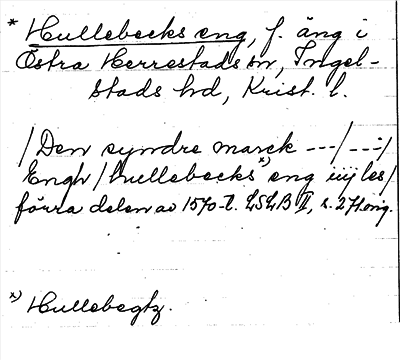 * Hullebecks eng, f. äng i
Östra Herrestads sn, Ingel-
stads hd, Krist. l.
/Den syndre marck ---/---/
Engh/hullebecks x) eng iiij les/
förra delen av 1570-t. LSLB II, s. 271 orig.
x) Hullebegtz.